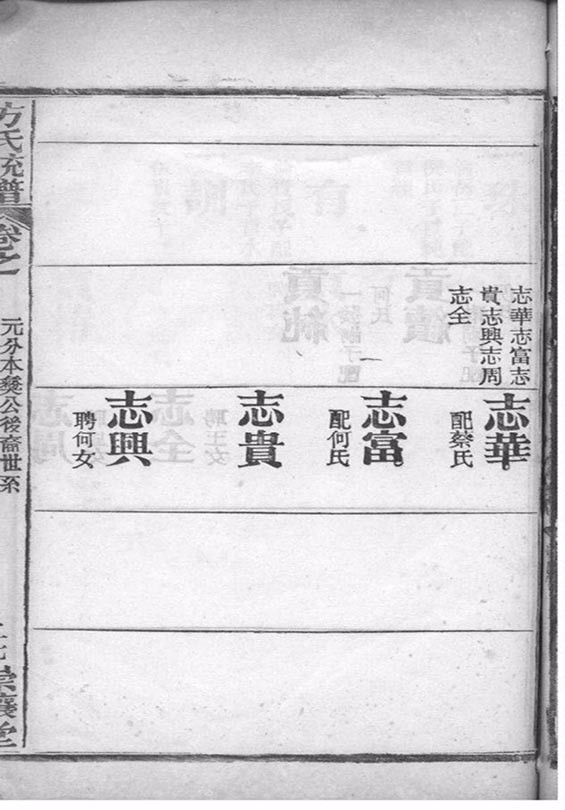 志華志富志
貴志興志周
志全
志華
配蔡氏
志富
配何氏
志貴
志興
聘何女
方氏統譜
卷之
元分本發公後裔世系
崇讓堂